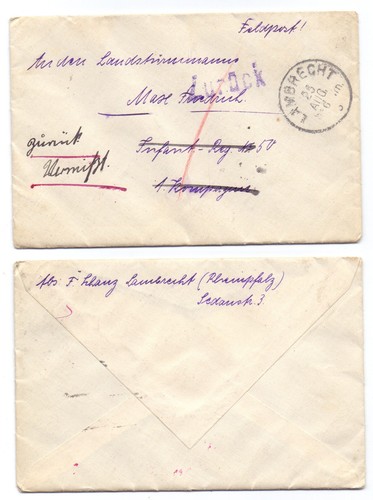 Feldpost!
An den Landsturmmann
Zurück
Max Friedrich
LAMBRECHT
25
AUG
zurück
Vermißt.
Infant. Reg. 50
1. Kompagnie
Abs: F Schanz Lambrecht (Rheinpfalz)
Sedanstr. 3.